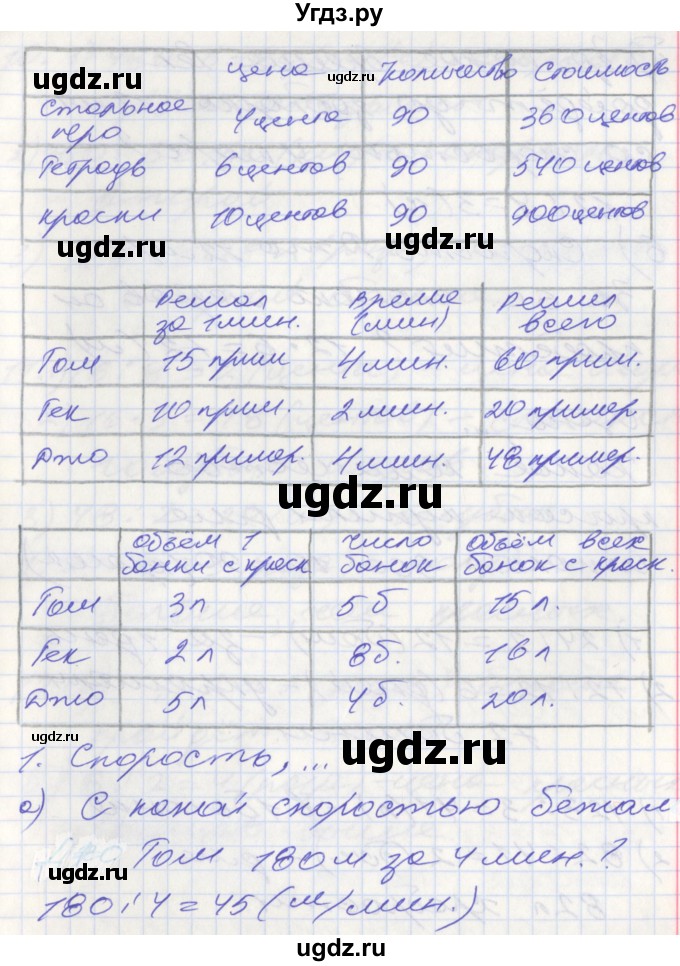 Угдз.ру
цена количество стоимость
ugdz.ru
ugdz.ru
Стальное перо 4 цента 90 360 центов
Тетрадь 6 центов 90 540 центов
краски 10 центов 90 900 центов
ugdz.ru
ugdz.ru
Решал за 1 мин. Время (мин) Решил всего
Том 15 прим 4 мин. 60 прим.
Гек 10 прим. 2 мин. 20 пример
Джо 12 пример. 4 мин. 48 пример.
ugdz.ru
Объём 1 банки с краск Число банок Объём всех банок с краск.
Том 3л 5б 15 л.
Гек 2л 8б. 16л
Джо 5л 4б. 20л.
ugdz.ru
ugdz.ru
1. Скорость, ...
а) С какой скоростью бежал
Том 180 м за 4 мин.?
ugdz.ru
180:4=45 (м/мин.)
ugdz.ru